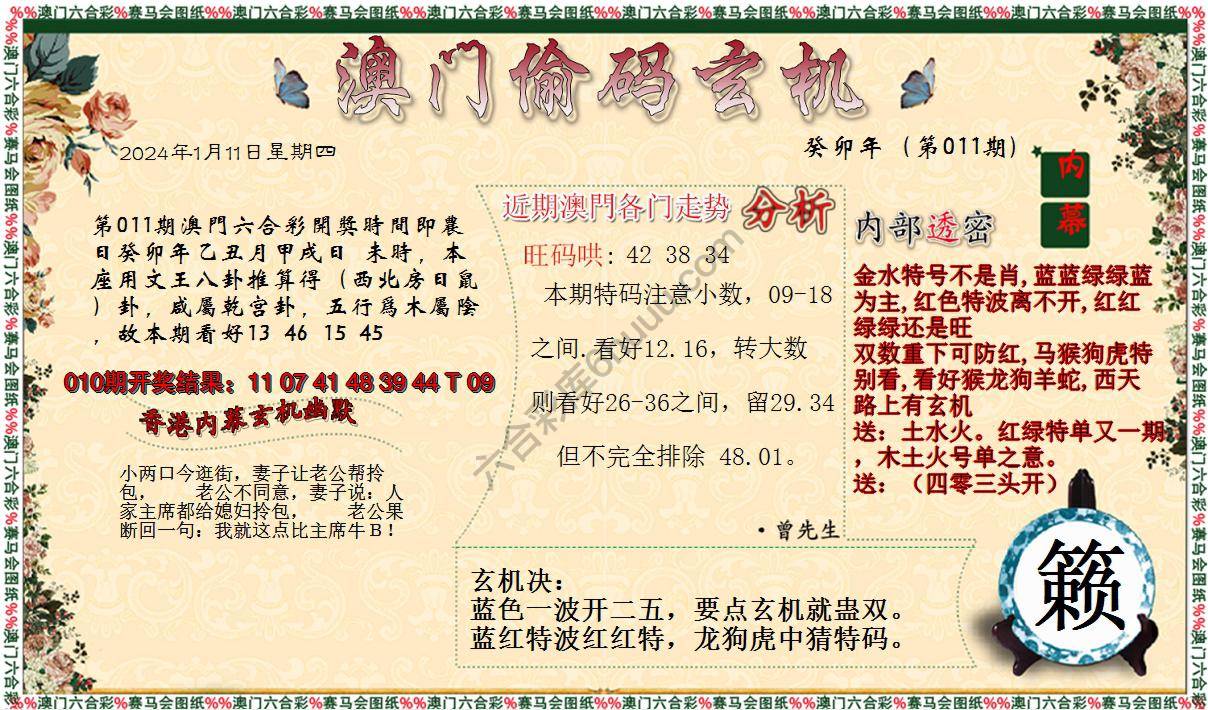 %%澳门六合彩%赛马会图纸%%澳门六合彩%赛马会图纸%%澳门六合彩%赛马会图纸%%澳门六合彩%赛马会图纸%%澳门六合彩%赛马会图纸%%澳门六合彩%赛马会图纸%%
澳门偷码玄机
2024年1月11日星期四
癸卯年（第011期）
内幕
第011期澳門六合彩開獎時間即農
日癸卯年乙丑月甲戌日 未時，本
座用文王八卦推算得（西北房日鼠
）卦，咸屬乾宫卦，五行爲木屬陰
，故本期看好13 46 15 45
010期开奖结果：11 07 41 48 39 44 T 09
香港内幕玄机幽默
小两口今逛街，妻子让老公帮拎
包， 老公不同意，妻子说：人
家主席都给媳妇拎包， 老公果
断回一句：我就这点比主席牛B！
近期澳門各门走势 分析
旺码哄: 42 38 34
本期特码注意小数，09-18
之间.看好12.16，转大数
则看好26-36之间，留29.34
但不完全排除 48.01。
·曾先生
内部透密
金水特号不是肖,蓝蓝绿绿蓝
为主,红色特波离不开,红红
绿绿还是旺
双数重下可防红,马猴狗虎特
别看,看好猴龙狗羊蛇,西天
路上有玄机
送：土水火。红绿特单又一期
，木土火号单之意。
送：（四零三头开）
玄机决：
蓝色一波开二五，要点玄机就蛊双。
蓝红特波红红特，龙狗虎中猜特码。
籁
%%澳门六合彩%赛马会图纸%%澳门六合彩%赛马会图纸%%澳门六合彩%赛马会图纸%%澳门六合彩%赛马会图纸%%澳门六合彩%赛马会图纸%%澳门六合彩%赛马会图纸%%